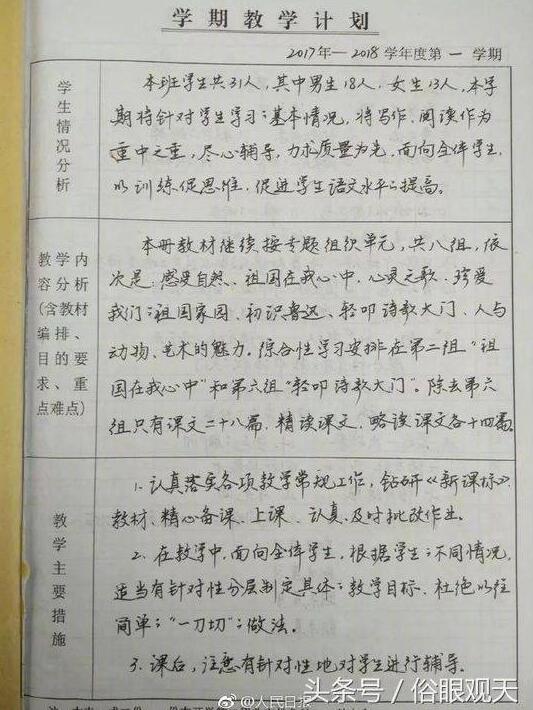 学期教学计划
2017年—2018学年度第一学期
学生情况分析
本班学生共31人，其中男生18人，女生13人，本学
期将针对学生学习之基本情况，将写作、阅读作为
重中之重，尽心辅导，力求质量为先，面向全体学生，
以训练促思维，促进学生语文水平之提高。
教学内
容分析
(含教材
编排、
目的要
求、重
点难点)
本册教材继续按专题组织单元，共八组，依
次是：感受自然、祖国在我心中、心灵之歌、珍爱
我们之祖国家园、初识鲁迅、轻叩诗歌大门、人与
动物、艺术的魅力。综合性学习安排在第二组“祖
国在我心中”和第六组“轻叩诗歌大门”。除去第六
组只有课文二十八篇，精读课文、略读课文各十四篇。
教学主要措施
1.认真落实各项教学常规工作，钻研《新课标》、
教材、精心备课、上课、认真、及时批改作业。
2.在教学中，面向全体学生，根据学生之不同情况，
适当有针对性分层制定具体之教学目标、杜绝以往
简单之“一刀切”之做法。
3.课后，注意有针对性地对学生进行辅导。
@人民日报
头条号/俗眼观天